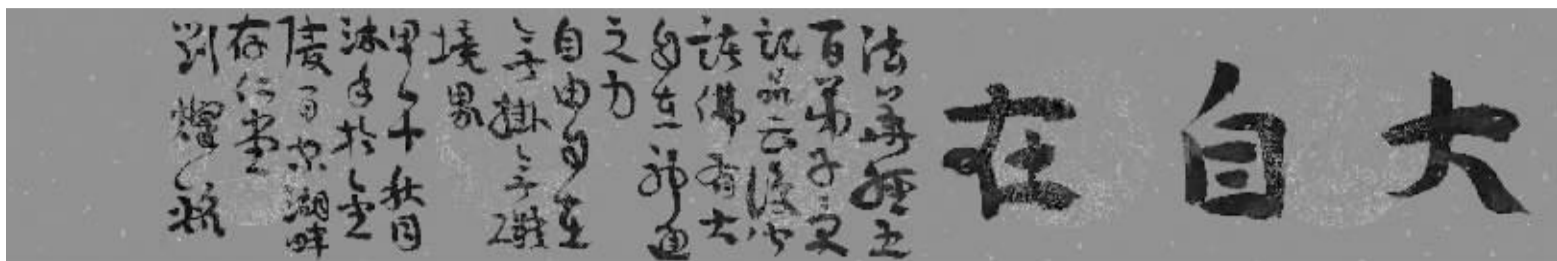 大自在
法華經五
百弟子受
記品云
諸佛有大
自在神通
之力
自由自在
無掛無礙
境界
甲午秋月
沐手於金
陵百家湖畔
存仁堂
劉燦銘